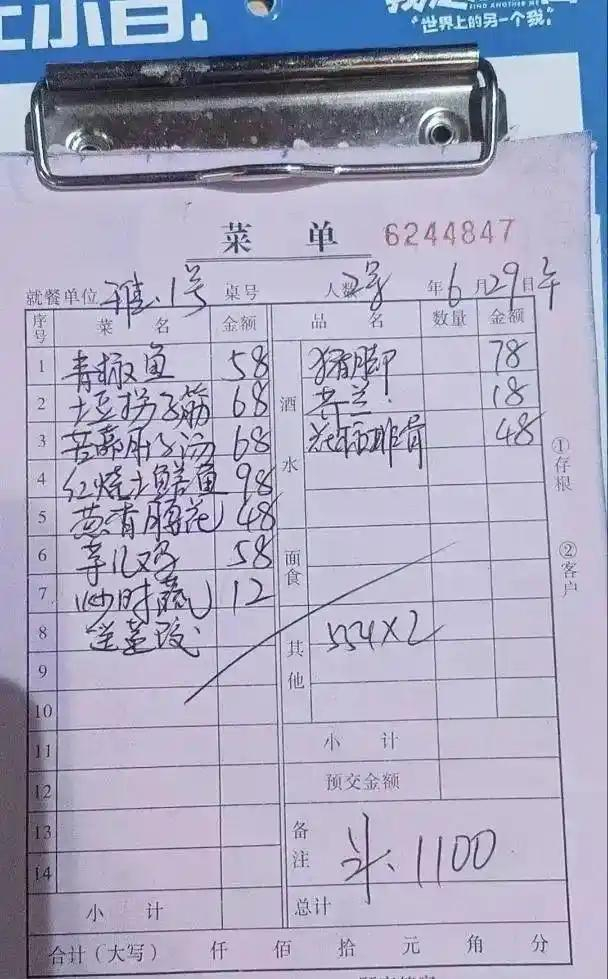 小音
FIND ANOTHER ME
“世界上的另一个我”
菜 单 6244847
就餐单位 1号 桌号 人数 2号 年 6 月 29 日 午
序号 菜 名 金额 品 名 数量 金额
1 青椒鱼 58 猪脚 78
2 土豆拐子筋 68 酒水 芥兰 18
3 肚子汤 68 排骨 48
4 红烧土鳝鱼 98
5 葱香腰花 48
6 芋儿鸡 58 面食
7 炒时蔬 12
8 送 其他 554×2
9
10
11 小 计
12 预交金额
13 备注 1100
14
小 计 总计
合计（大写） 仟 佰 拾 元 角 分
①存根
②客户